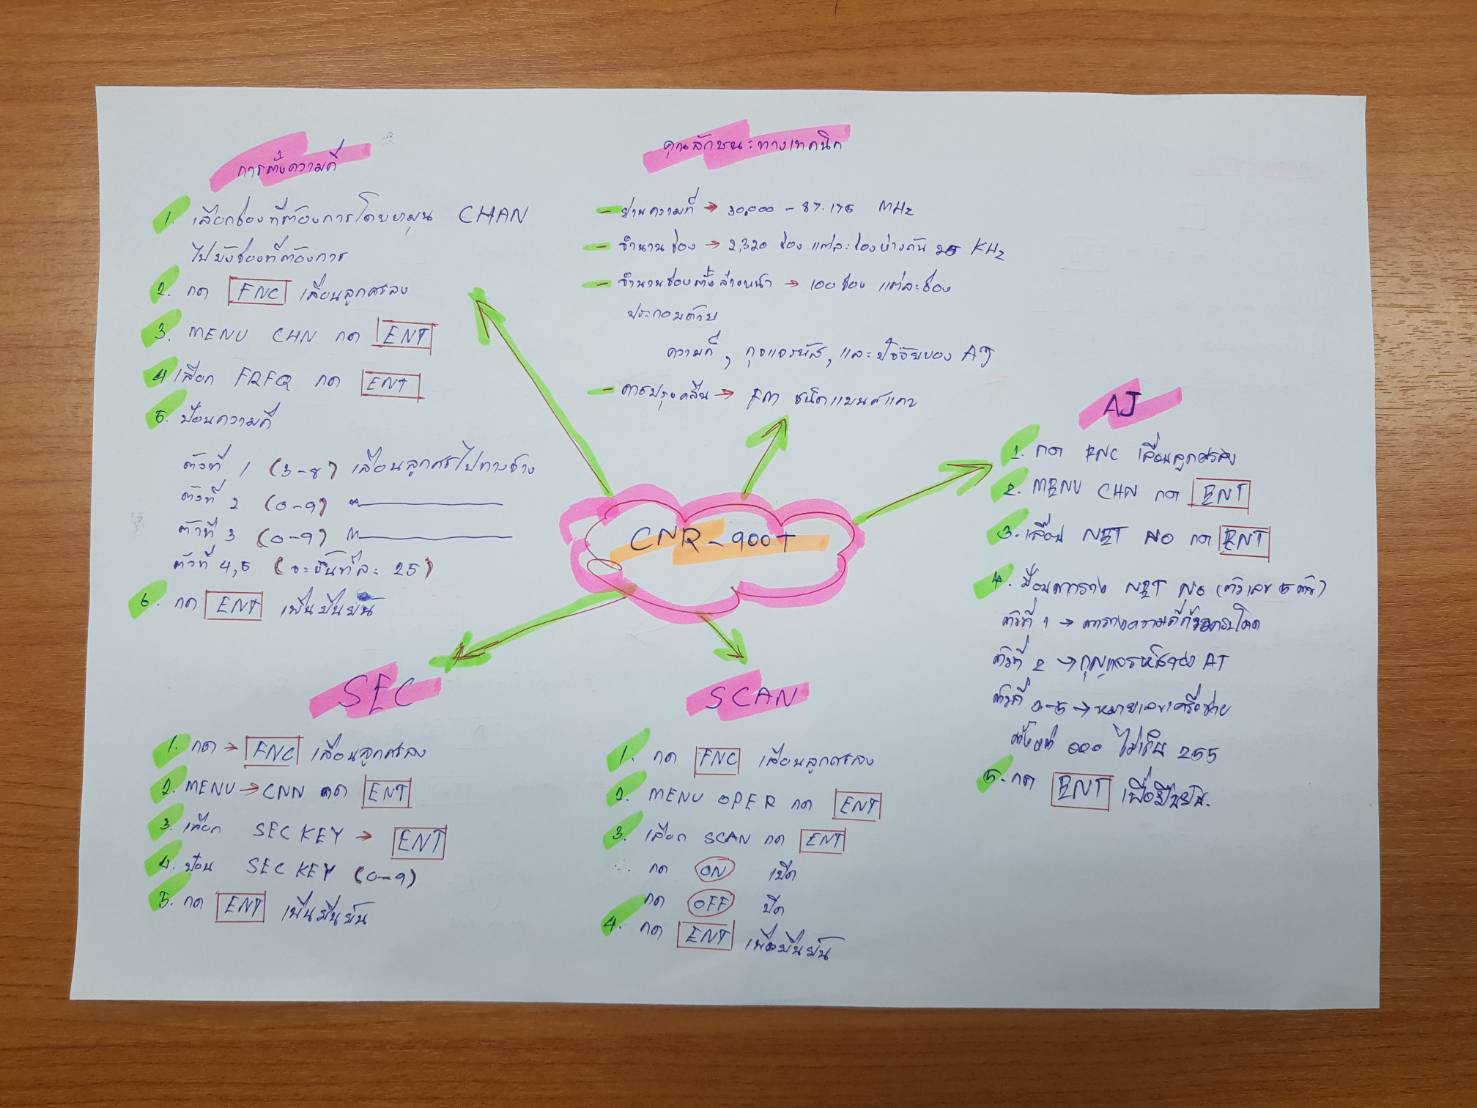 การตั้งความถี่
1. เลือกช่องที่ต้องการโดยหมุน CHAN
ไปยังช่องที่ต้องการ
2. กด FNC เลื่อนลูกศรลง
3. MENU CHN กด ENT
4 เลือก FREQ กด ENT
5. ป้อนความถี่
ตัวที่ 1 (3-8) เลื่อนลูกศรไปทางขวา
ตัวที่ 2 (0-9)
ตัวที่ 3 (0-9)
ตัวที่ 4,5 (จะขึ้นทีละ 25)
6. กด ENT เพื่อยืนยัน
คุณลักษณะทางเทคนิค
- ย่านความถี่ → 30,000 - 87.175 MHz
- จำนวนช่อง → 2,320 ช่อง แต่ละช่องห่างกัน 25 KHz
- จำนวนช่องตั้งล่วงหน้า → 100 ช่อง แต่ละช่อง
ประกอบด้วย
ความถี่, กุญแจรหัส, และปัจจัยของ AJ
- การปรุงคลื่น → FM ชนิดแถบแคบ
CNR-900T
AJ
1. กด FNC เลื่อนลูกศรลง
2. MENU CHN กด ENT
3. เลือก NET NO กด ENT
4. ป้อนตาราง NET NO (ตัวเลข 5 ตัว)
ตัวที่ 1 → ตารางความถี่
ตัวที่ 2 → กุญแจรหัสของ AJ
ตัวที่ 3-5 → หมายเลขเครือข่าย
ตั้งแต่ 000 ไม่เกิน 255
5. กด ENT เพื่อยืนยัน.
SEC
1. กด → FNC เลื่อนลูกศรลง
2. MENU → CNN กด ENT
3. เลือก SEC KEY → ENT
4. ป้อน SEC KEY (0-9)
5. กด ENT เพื่อยืนยัน
SCAN
1. กด FNC เลื่อนลูกศรลง
2. MENU OPER กด ENT
3. เลือก SCAN กด ENT
กด ON เปิด
กด OFF ปิด
4. กด ENT เพื่อยืนยัน